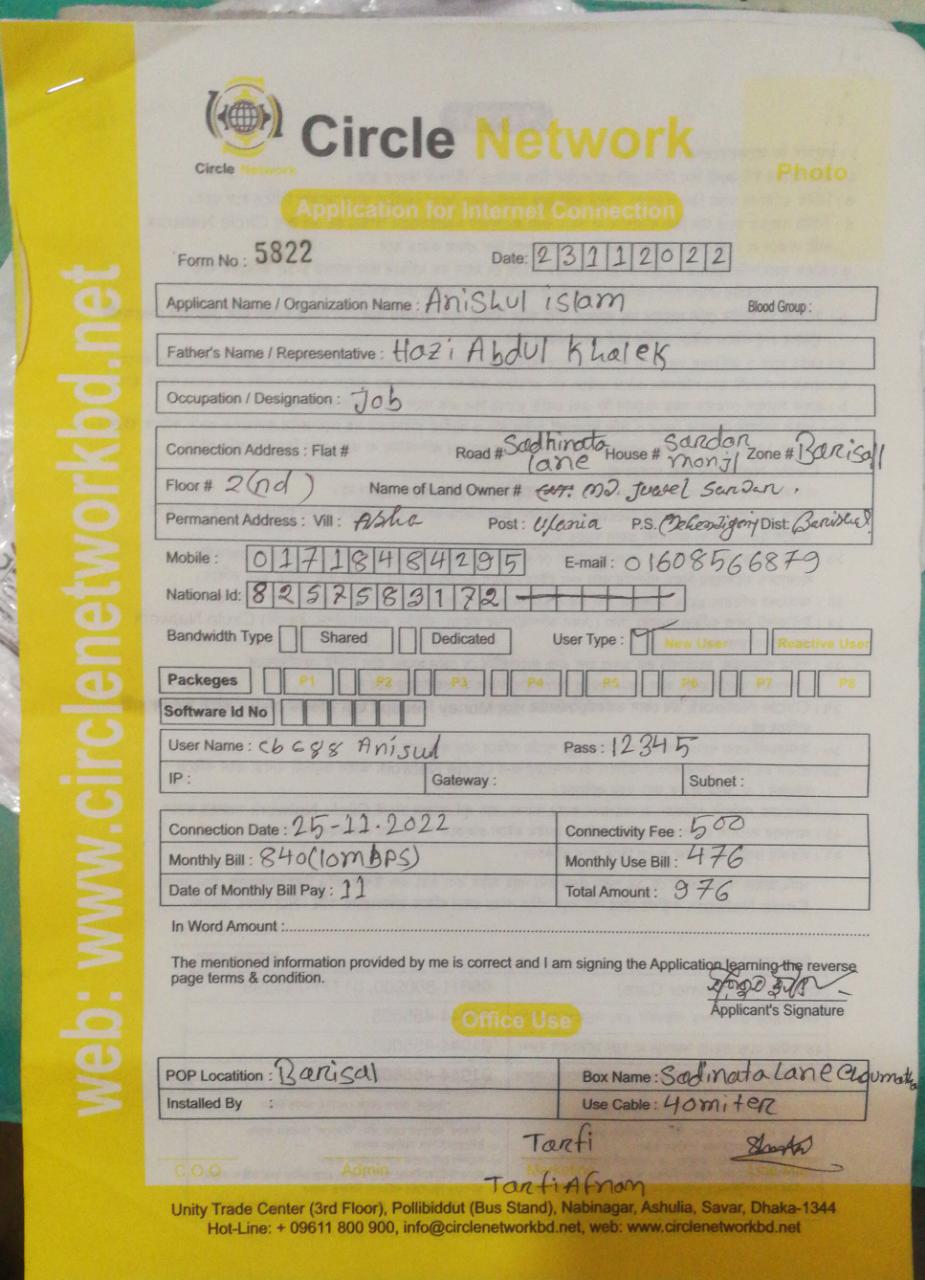 Circle Network
Circle Network
Photo
Application for Internet Connection
Form No : 5822 Date: 23112022
Applicant Name / Organization Name : Anishul islam Blood Group :
Father's Name / Representative : Hazi Abdul Khalek
Occupation / Designation : Job
Connection Address : Flat # Road # Sadhinata lane House # Sardar monjl Zone # Barisal
Floor # 2(nd) Name of Land Owner # MD. Juwel Sardar.
Permanent Address : Vill : Post : Ulania P.S. Mehendigonj Dist: Barishal
Mobile : 01718484295 E-mail : 01608566879
National Id: 8257583172
Bandwidth Type Shared Dedicated User Type : New User Reactive User
Packeges P1 P2 P3 P4 P5 P6 P7 P8
Software Id No
User Name : Anisul Pass : 12345
IP : Gateway : Subnet :
Connection Date : 25-11.2022 Connectivity Fee : 500
Monthly Bill : 840(10mbPS) Monthly Use Bill : 476
Date of Monthly Bill Pay : 11 Total Amount : 976
In Word Amount :
The mentioned information provided by me is correct and I am signing the Application learning the reverse
page terms & condition.
Applicant's Signature
Office Use
POP Locatition : Barisal Box Name : Sadinata Lane
Installed By : Use Cable : 40miter
Tarfi
C.O.O Admin Marketing
Tarfi Afnan
Unity Trade Center (3rd Floor), Pollibiddut (Bus Stand), Nabinagar, Ashulia, Savar, Dhaka-1344
Hot-Line: + 09611 800 900, info@circlenetworkbd.net, web: www.circlenetworkbd.net
web: www.circlenetworkbd.net